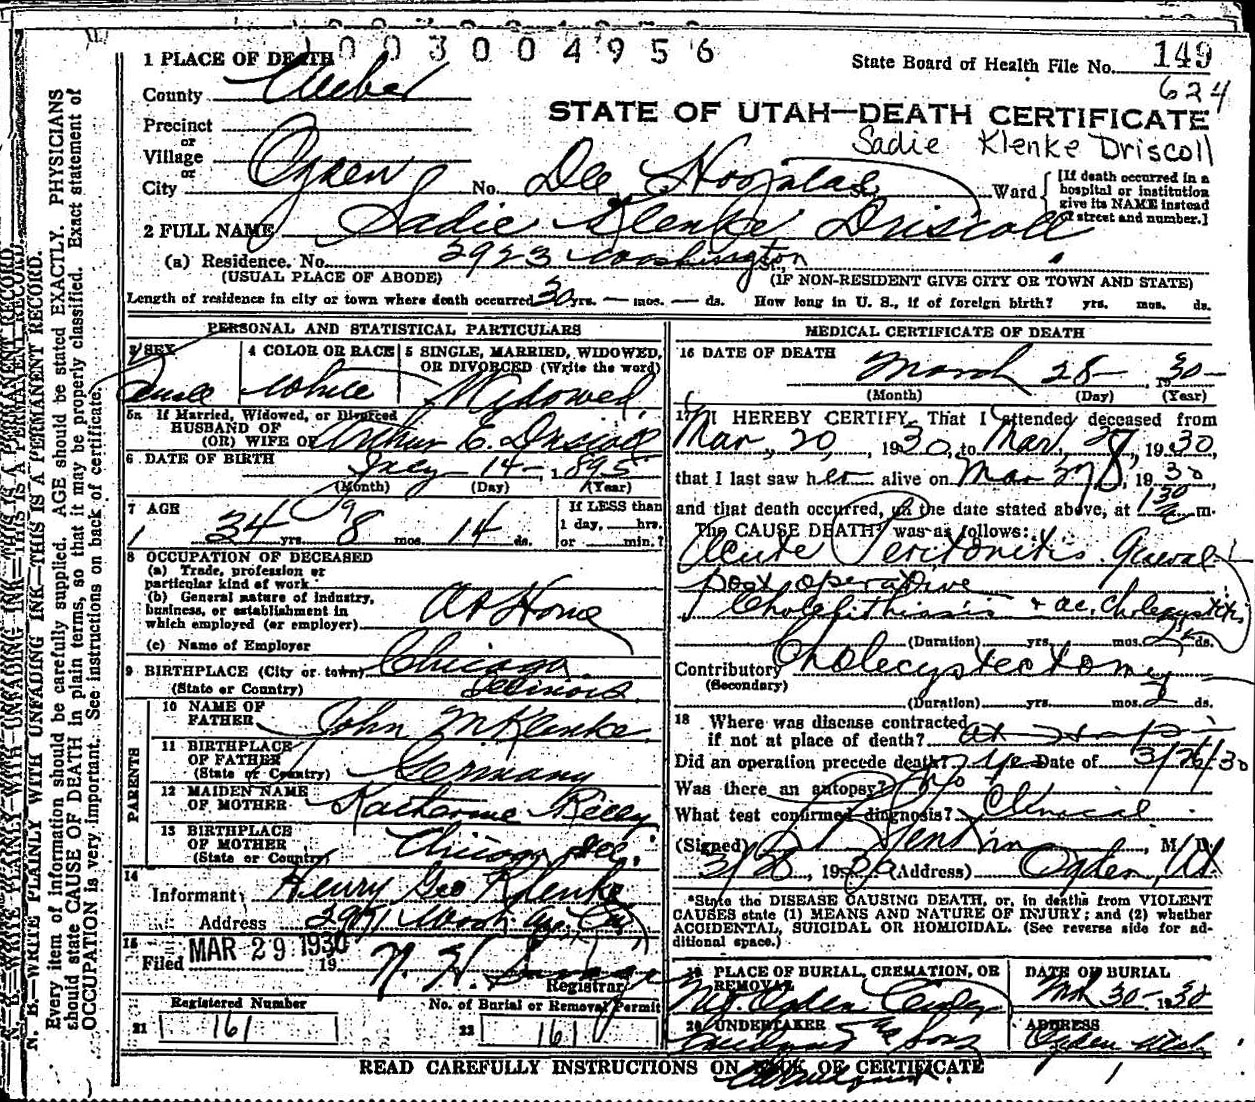 003004956
State Board of Health File No. 149
624
1 PLACE OF DEATH
County Weber
STATE OF UTAH—DEATH CERTIFICATE
Sadie Klenke Driscoll
Precinct
or
Village
or
City Ogden No. Dee Hospital St. Ward
[If death occurred in a hospital or institution give its NAME instead of street and number.]
2 FULL NAME Sadie Klenke Driscoll
(a) Residence. No. 2923 Washington St.
(USUAL PLACE OF ABODE) (IF NON-RESIDENT GIVE CITY OR TOWN AND STATE)
Length of residence in city or town where death occurred 30 yrs. — mos. — ds. How long in U. S., if of foreign birth? yrs. mos. ds.
PERSONAL AND STATISTICAL PARTICULARS
3 SEX
4 COLOR OR RACE White
5 SINGLE, MARRIED, WIDOWED, OR DIVORCED (Write the word)
Widowed
5a If Married, Widowed, or Divorced
HUSBAND OF
(OR) WIFE OF Arthur E. Driscoll
6 DATE OF BIRTH July 14 - 1895
(Month) (Day) (Year)
7 AGE
34 yrs. 8 mos. 14 ds.
If LESS than
1 day, hrs.
or min.?
8 OCCUPATION OF DECEASED
(a) Trade, profession or
particular kind of work
(b) General nature of industry,
business, or establishment in
which employed (or employer) At Home
(c) Name of Employer
9 BIRTHPLACE (City or town) Chicago
(State or Country) Illinois
PARENTS
10 NAME OF
FATHER John M Klenke
11 BIRTHPLACE
OF FATHER
(State or Country) Germany
12 MAIDEN NAME
OF MOTHER Katharine Reley
13 BIRTHPLACE
OF MOTHER
(State or Country) Chicago Ill.
14
Informant Henry Geo Klenke
Address
15
Filed MAR 29 1930 19
Registrar
Registered Number
21 161
No. of Burial or Removal Permit
22 161
MEDICAL CERTIFICATE OF DEATH
16 DATE OF DEATH
March 28 - 1930
(Month) (Day) (Year)
17 I HEREBY CERTIFY, That I attended deceased from
Mar, 20, 1930, to Mar, 28, 1930,
that I last saw her alive on Mar 28, 1930,
and that death occurred, on the date stated above, at 130 a m.
The CAUSE DEATH* was as follows:
Acute Peritonitis. General
post operative
Cholelithiasis + ac. Cholecystitis
(Duration) yrs. mos. 2 ds.
Contributory Cholecystectomy
(Secondary)
(Duration) yrs. mos. 2 ds.
18 Where was disease contracted
if not at place of death?
Did an operation precede death? yes Date of 3/26/30
Was there an autopsy? No
What test confirmed diagnosis? Clinical
(Signed) Jenkin, M. D.
3/28, 1930 (Address) Ogden, Ut.
*State the DISEASE CAUSING DEATH, or, in deaths from VIOLENT
CAUSES state (1) MEANS AND NATURE OF INJURY; and (2) whether
ACCIDENTAL, SUICIDAL OR HOMICIDAL. (See reverse side for ad-
ditional space.)
19 PLACE OF BURIAL, CREMATION, OR
REMOVAL
Mt. Ogden
DATE OF BURIAL
Mch 30 - 1930
20 UNDERTAKER
& Sons
ADDRESS
Ogden Utah
READ CAREFULLY INSTRUCTIONS ON BACK OF CERTIFICATE
N. B.—WRITE PLAINLY WITH UNFADING INK—THIS IS A PERMANENT RECORD.
Every item of information should be carefully supplied. AGE should be stated EXACTLY. PHYSICIANS
should state CAUSE OF DEATH in plain terms, so that it may be properly classified. Exact statement of
OCCUPATION is very important. See instructions on back of certificate.